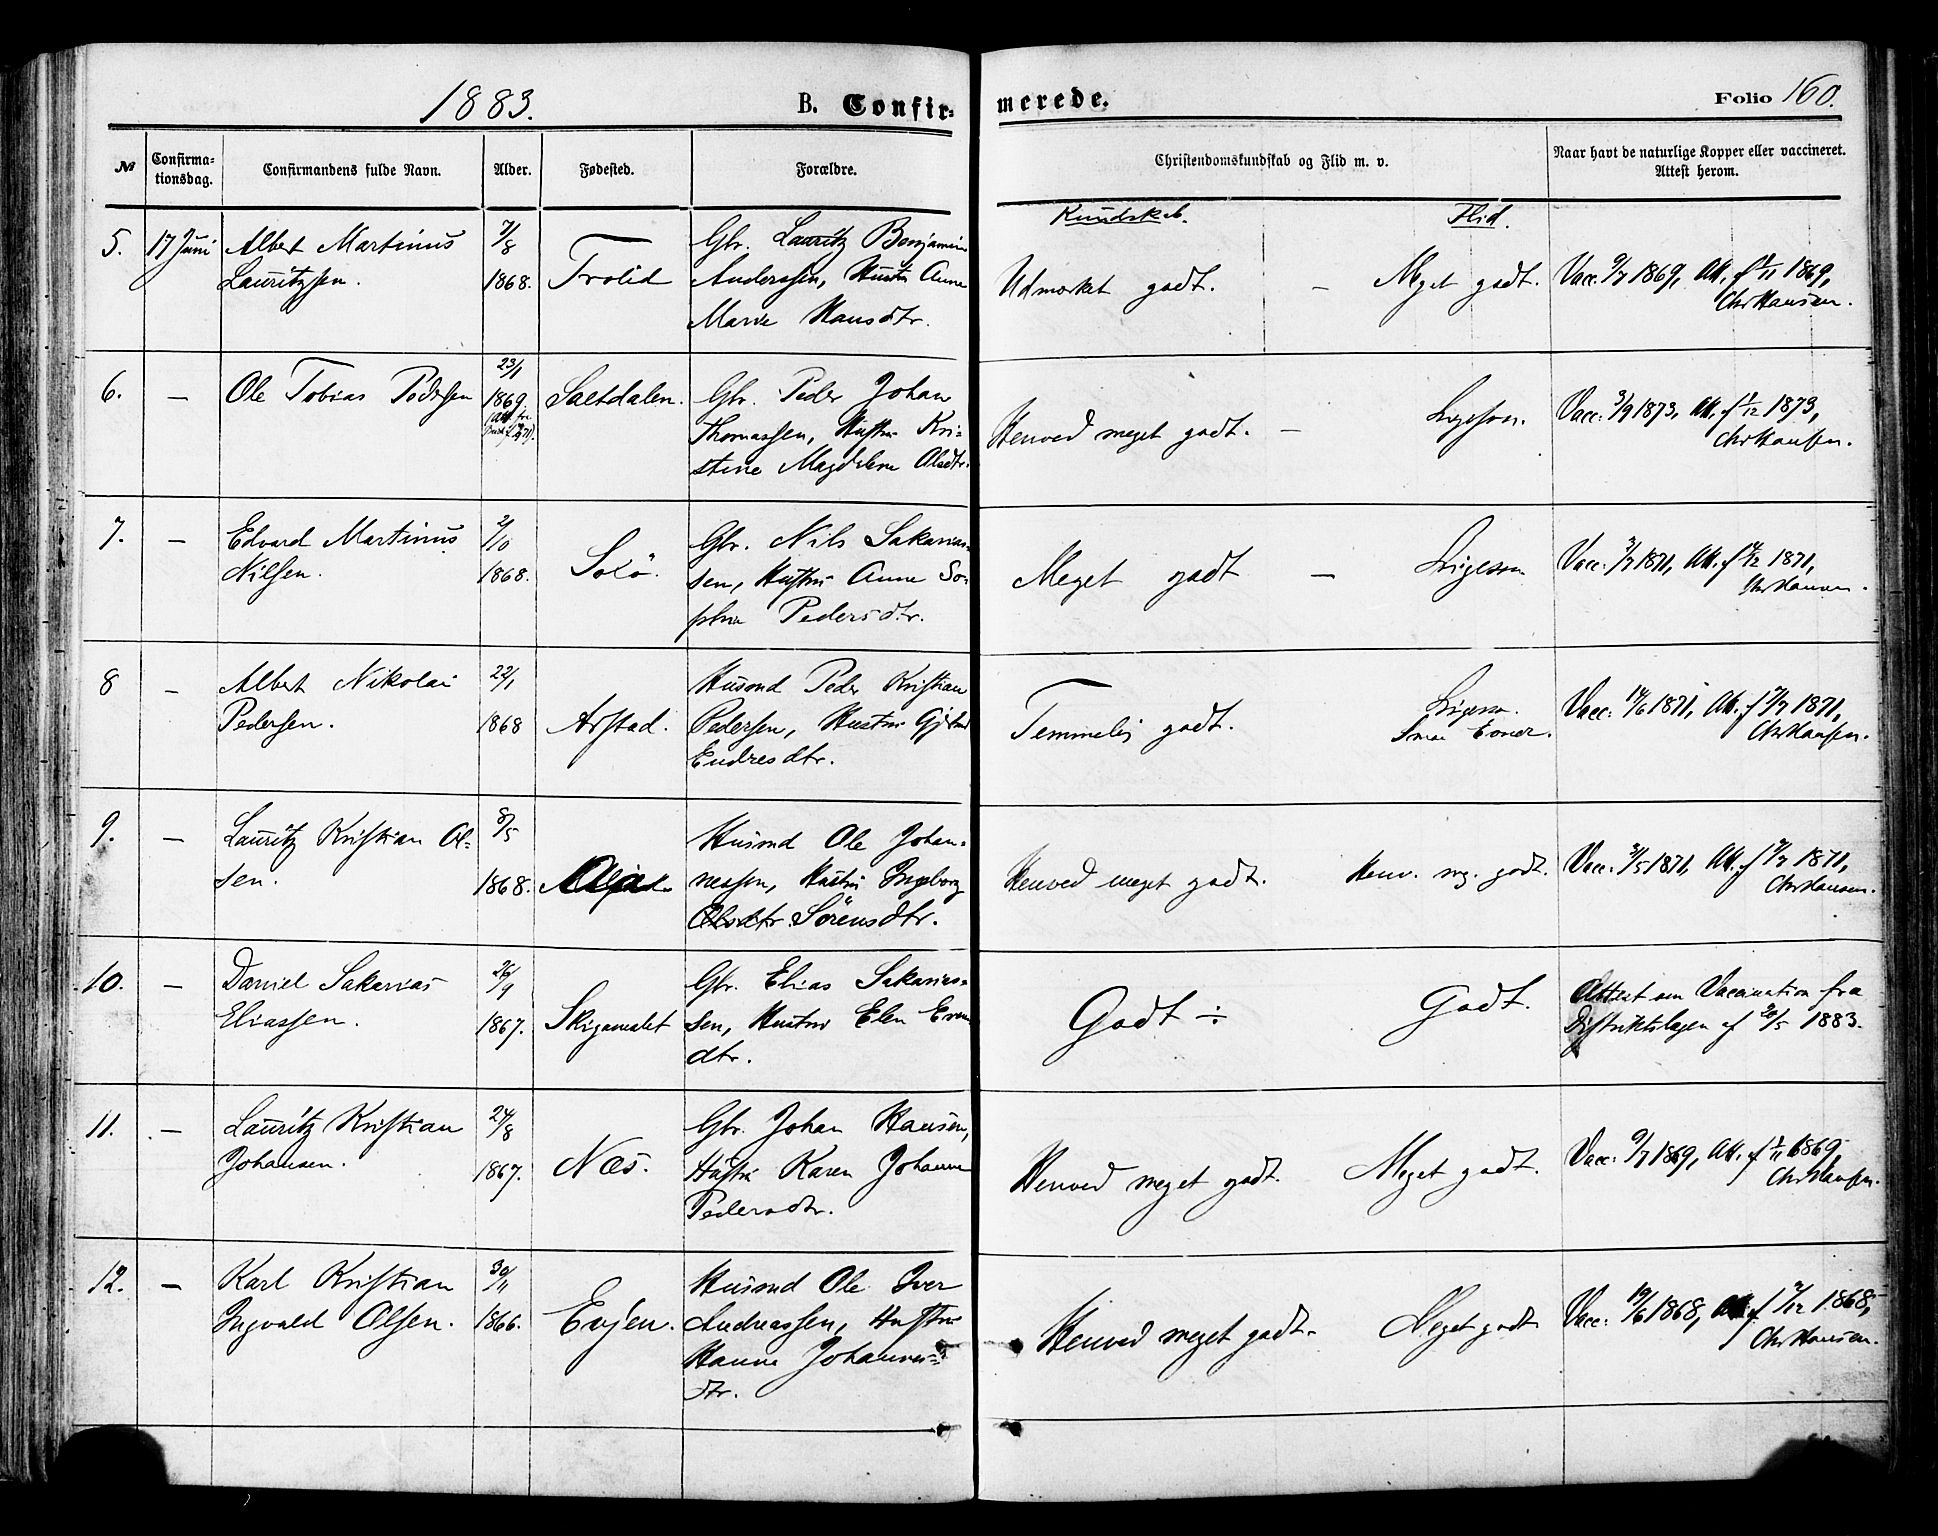 1883. B. Confir=merede. Folio 160.
№ Confirma=tionsdag. Confirmandens fulde Navn. Alder. Fødested. Forældre. Christendomskundskab og Flid m. v. Naar havt de naturlige Kopper eller vaccineret. Attest herom.
Kundskab. Flid.
5. 17 Juni Albert Martinus 7/8 Gbr. Lauritz Benjamin
Lauritzsen. 1868. Trolid Anderssen, Hustru Anne Udmærket godt. – Meget godt. Vacc. 9/7 1869, Att. f 1/11 1869,
Marie Hansdtr. Chr Hansen.
6. – Ole Tobias Pedersen 23/1 1869. Saltdalen. Gbr. Peder Johan Vacc: 3/9 1873, Att. f 1/12 1873,
Thomassen, Hustru Kri= Henved meget godt. – Ligesom. Chr Hansen.
stine Magdalena Olsdtr.
7. – Edvard Martinus 2/10 Gbr. Nils Sakarias=
Nilsen. 1868. Solö. sen, Hustru Anne So= Meget godt – Ligesom Vacc: 3/7 1871, Att. f 1871,
phie Pedersdtr. Chr Hansen.
8 – Albert Nikolai 22/1 Husmd Peder Kristian
Pedersen. 1868 Arstad. Pedersen, Hustru Temmelig godt. Ligesom. Vacc: 14/6 1871, Att. f 1871,
Endresdtr. Smaa Evner. Chr Hansen.
9. – Lauritz Kristian Ol= 8/5 Husmd Ole Johan=
sen. 1868. nessen, Hustru Ingeborg Henved meget godt. Henv. mg. godt. Vacc: 31/5 1871, Att. f 1871,
Olsdtr. Sörensdtr. Chr Hansen.
10. – Daniel Sakarias 26/9 Gbr. Elias Sakarias=
Eliassen. 1867. sen, Hustru Elen Godt ÷ Godt. Attest om Vaccination fra
dtr. Distriktslægen af 20/5 1883.
11. – Lauritz Kristian 24/8 Gbr. Johan Hansen,
Johansen. 1867. Næs. Hustru Karen Johanne Henved meget godt. Meget godt. Vacc: 9/7 1869, Att. f 1/11 1869,
Pedersdtr. Chr Hansen.
12. – Karl Kristian 30/11 Husmd Ole Iver
Ingvald Olsen. 1866. Evjen. Andreassen, Hustru Henved meget godt. Meget godt Vacc: 19/6 1868, Att. f 1868,
Hanna Johannes= Chr Hansen.
dtr.